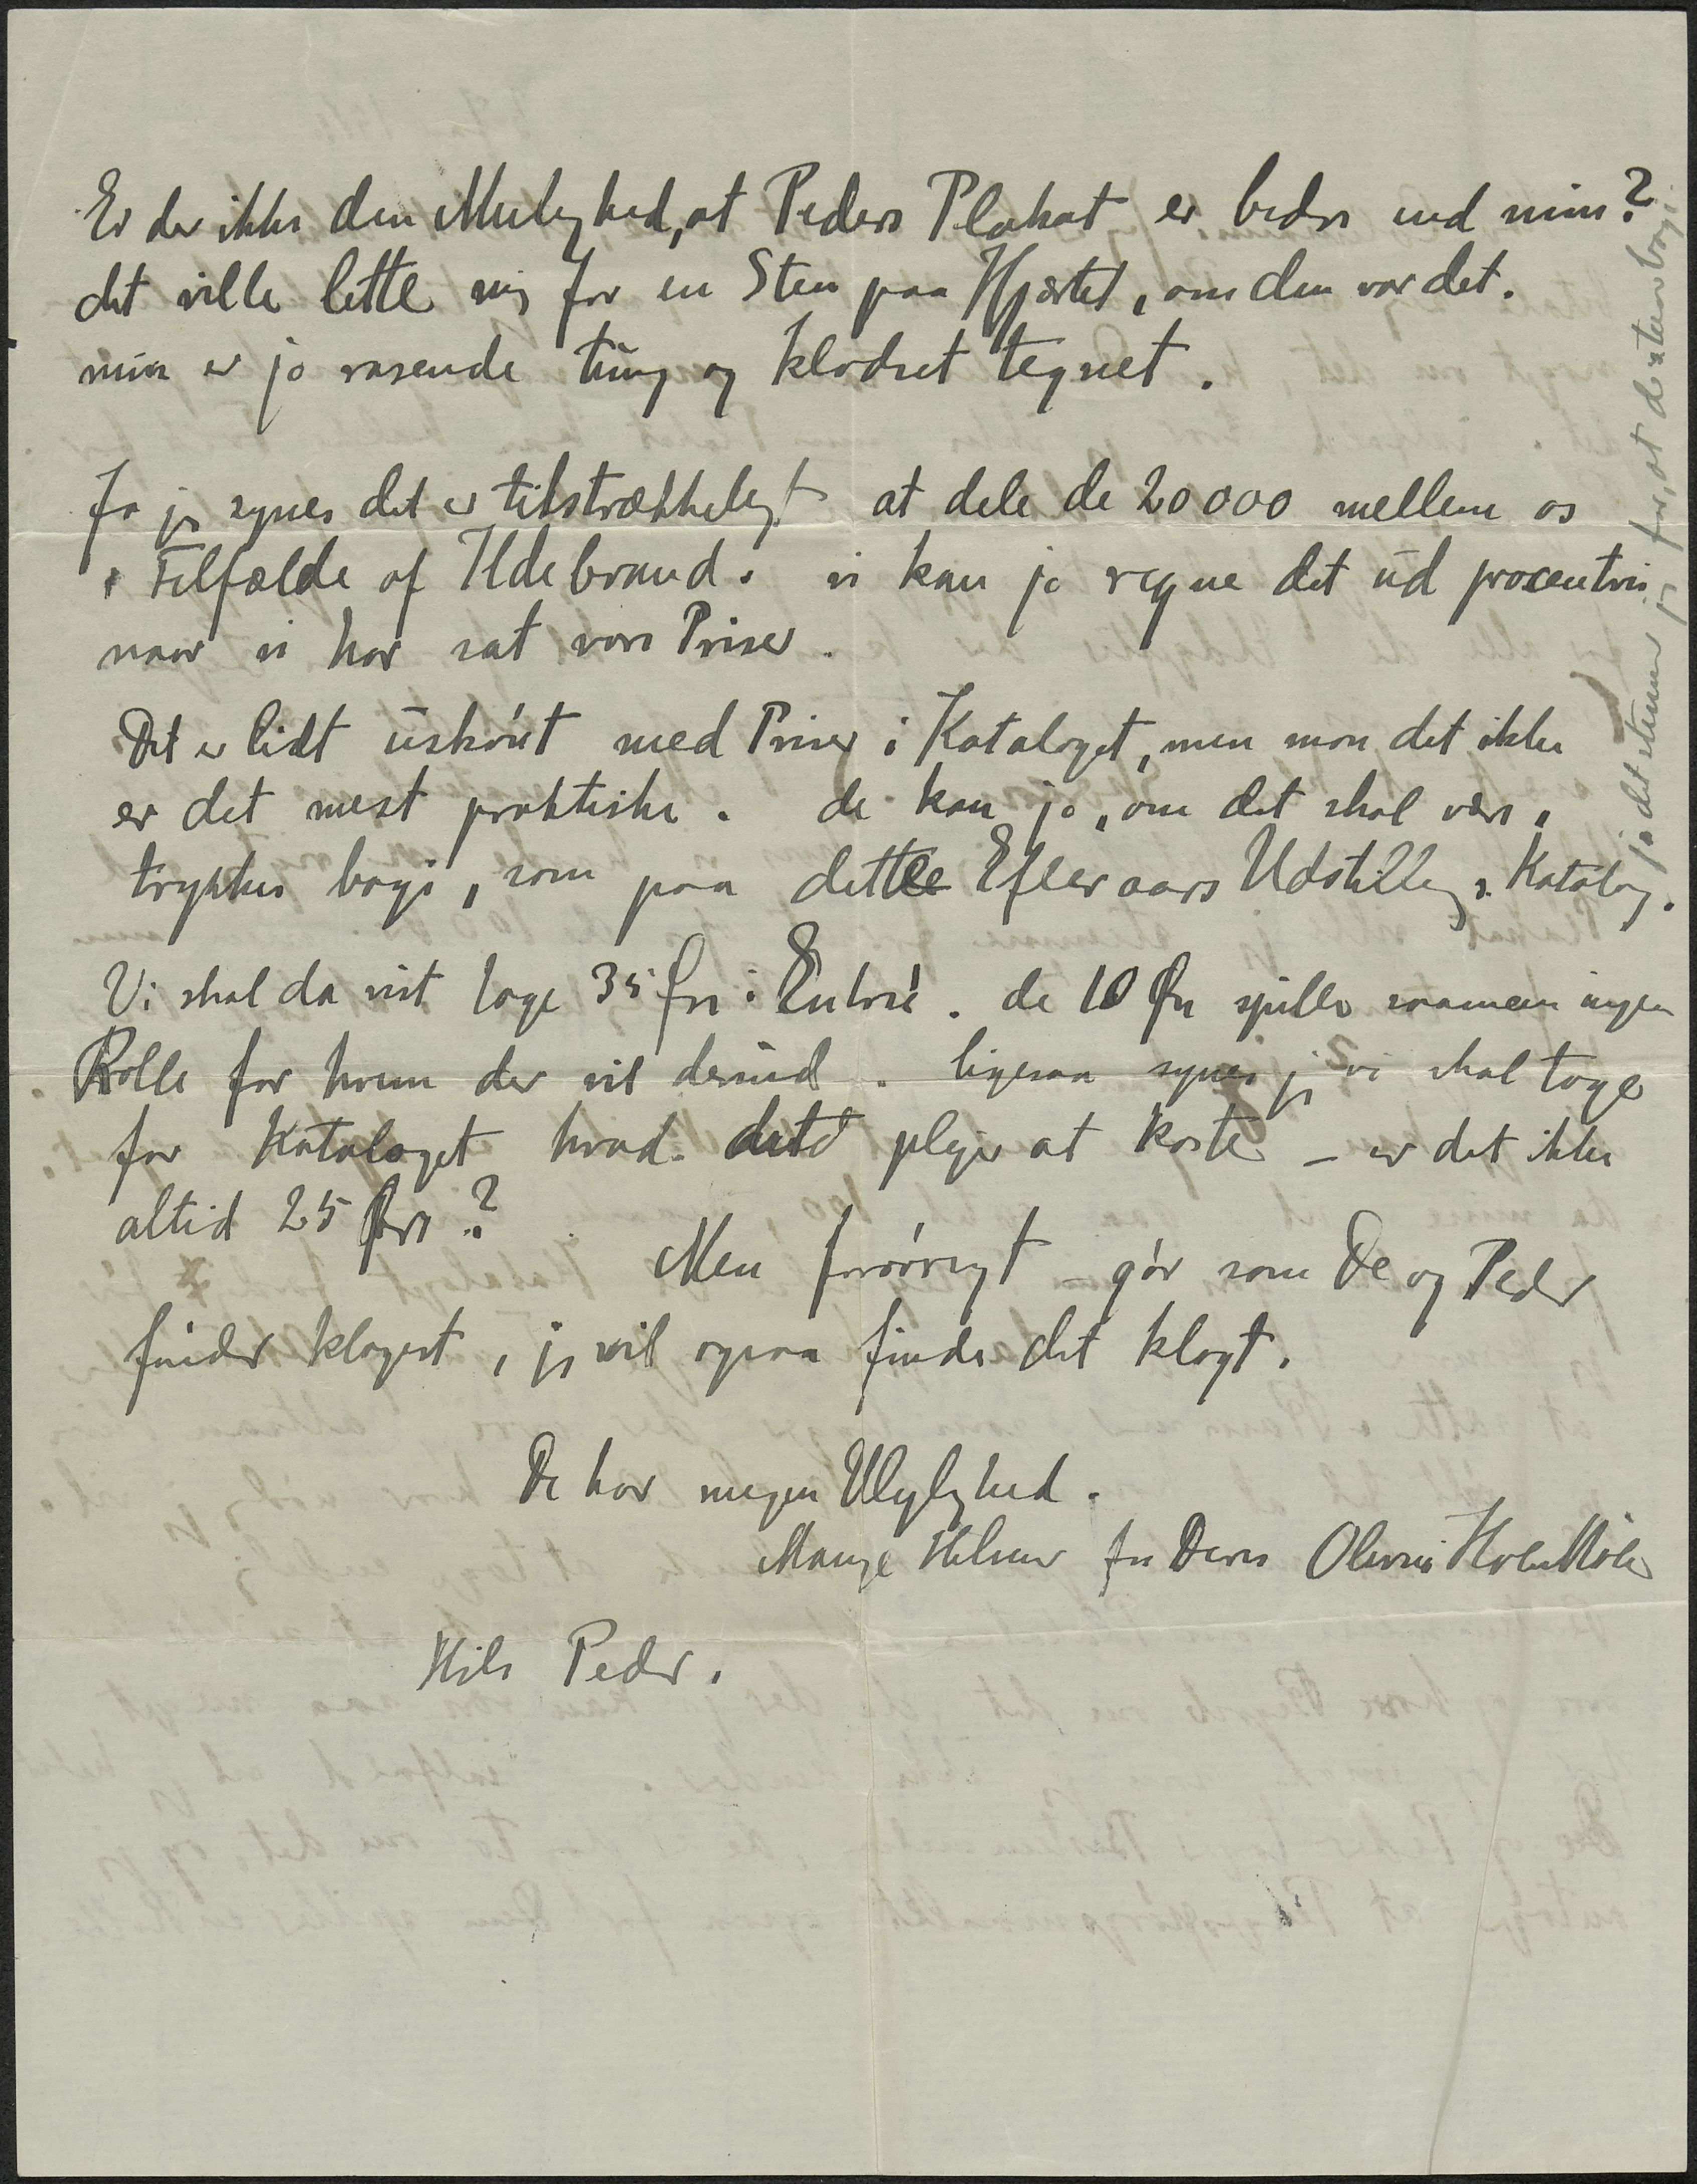 Er der ikke den Mulighed, at Peders Plakat er bedre end min?
det ville lette mig for en Sten paa Hjærtet, om den var det.
min er jo rasende tung og klodset tegnet.
Ja jeg synes det er tilstrækkeligt at dele de 20000 mellem os
i Tilfælde af Ildebrand. vi kan jo regne det ud procentvis
naar vi har sat vore Priser.
Det er lidt uskønt med Priser i Kataloget, men mon det ikke
er det mest praktiske. de kan jo, om det skal være,
trykkes bagi, som paa dette Efteraars Udstillings Katalog.
Vi skal da vist tage 35 Øre i Entré. de 10 Øre spiller saamæn ingen
Rolle for hvem der vil derind. ligesaa synes jeg vi skal tage
for Kataloget hvad det plejer at koste – er det ikke
altid 25 Øre?
Men forøvrigt – gør som De og Peder
finder klogest, jeg vil ogsaa finde det klogt.
De har megen Ulejlighed.
Mange Hilsner fra Deres Olivia Holm Møller
Hils Peder.
ja det stemmer jeg for, at de staar bagi